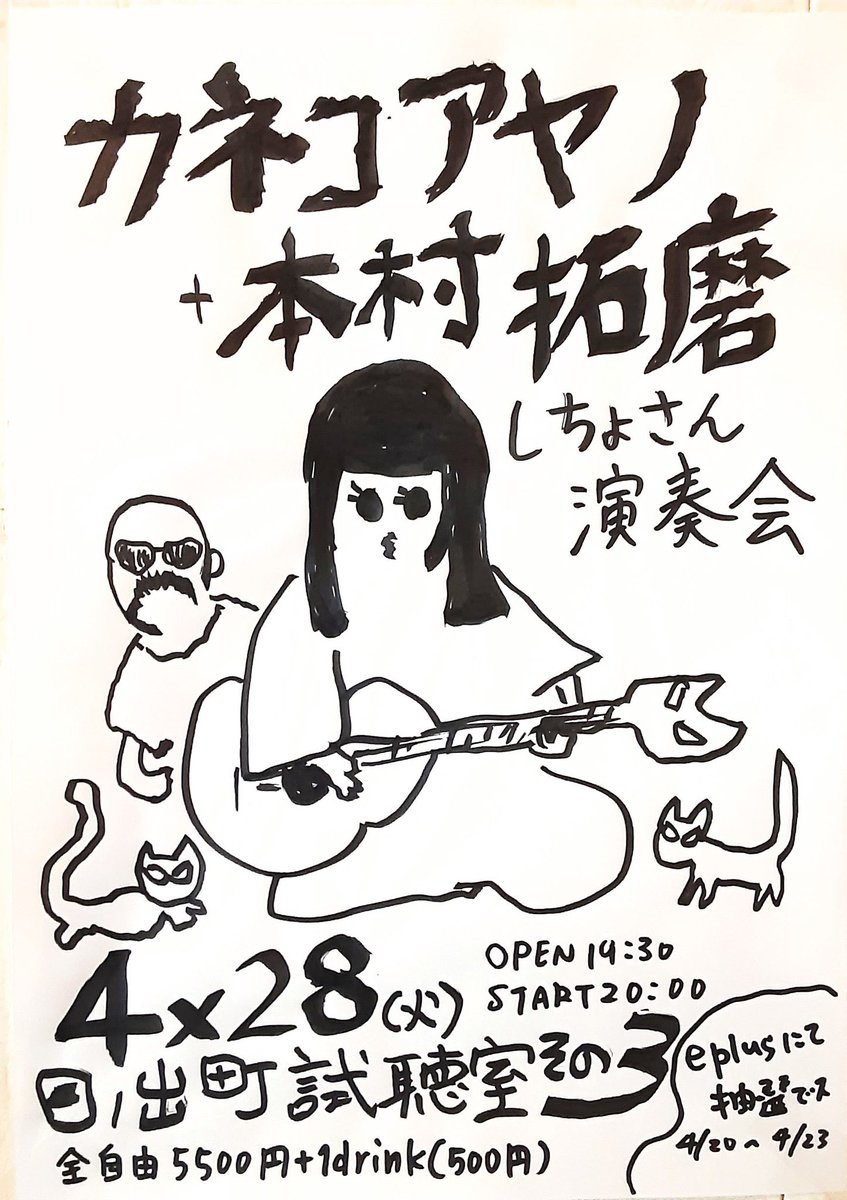 カネコアヤノ
+本村拓磨
しちょさん
演奏会
4×28(火)
OPEN 19:30
START 20:00
日ノ出町試聴室その3
全自由5500円+1drink(500円)
eplusにて
抽選でス
4/20〜4/23